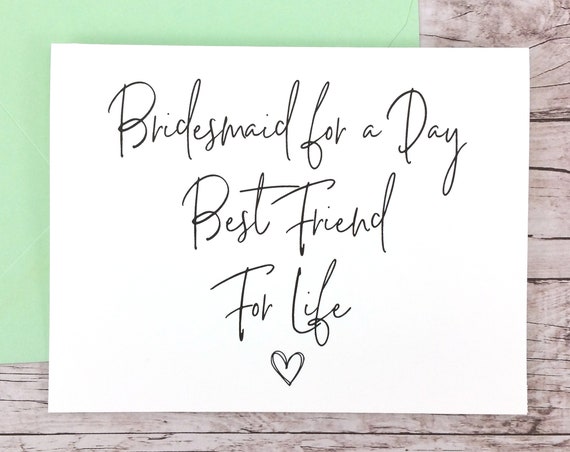 Bridesmaid for a Day
Best Friend
For Life